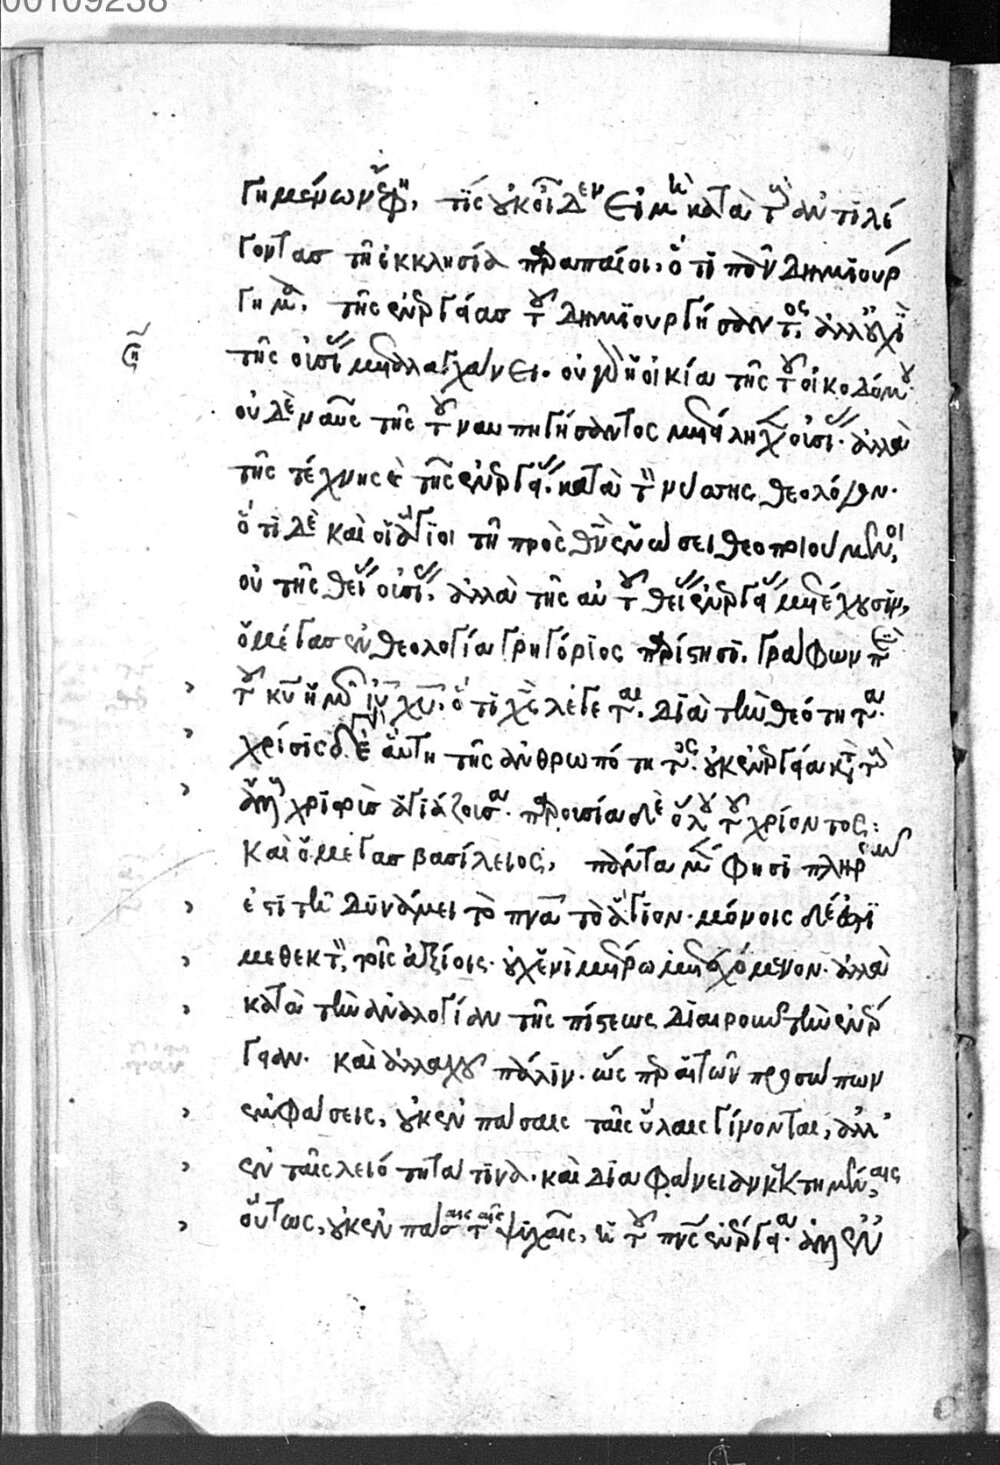 00109238
γημένων ἔφη, τίς οὐκ οἶδεν εἰ μὴ κατὰ τὴν ἀντιλέ
γοντας τῇ ἐκκλησίᾳ παραπαίει, ὅτι πᾶν δημιούρ
γημα, τῆς ἐνεργείας τοῦ δημιουργήσαντος, ἀλλ' οὐχὶ
τῆς οὐσίας μεταλαγχάνει. οὐ γὰρ ἡ οἰκία τῆς τοῦ οἰκοδόμου
οὐδὲ ναῦς τῆς τοῦ ναυπηγήσαντος μετείληχεν οὐσίας. ἀλλὰ
τῆς τέχνης καὶ τῆς ἐνεργείας. κατὰ τὴν νύσσης θεολόγον.
ὅτι δὲ καὶ οἱ ἅγιοι τῇ πρὸς θεὸν ἑνώσει θεοποιούμενοι,
οὐ τῆς θείας οὐσίας, ἀλλὰ τῆς αὐτοῦ θείας ἐνεργείας μετέχουσιν,
ὁ μέγας ἐν θεολογίᾳ γρηγόριος παρίστησι. γράφων περὶ
τοῦ κυ ἡμῶν ιυ χυ. ὅτι χς λέγεται. διὰ τὴν θεότητα.
χρίσις δὲ αὕτη τῆς ἀνθρωπότητος. οὐκ ἐνεργείᾳ κατὰ τοὺς
ἄλλους χριστοὺς ἁγιάζουσα. παρουσίᾳ δὲ ὅλου τοῦ χρίοντος:
Καὶ ὁ μέγας βασίλειος, πάντα μὲν φησὶ πληροῦν
ἐστὶ τῇ δυνάμει τὸ πνα τὸ ἅγιον. μόνοις δέ ἐστι
μεθεκτὸν, τοῖς ἀξίοις. οὐχ ἑνὶ μέτρῳ μετεχόμενον. ἀλλὰ
κατὰ τὴν ἀναλογίαν τῆς πίστεως διαιροῦν τὴν ἐνέρ
γειαν. καὶ ἀλλαχοῦ πάλιν. ὡς γὰρ αἱ τῶν προσώπων
ἐμφάσεις, οὐκ ἐν πάσαις ταῖς ὕλαις γίνονται, ἀλλ'
ἐν ταῖς λειότητά τινα. καὶ διαφάνειαν κεκτημέναις,
οὕτως, οὐκ ἐν πάσαις ταῖς ψυχαῖς, ἡ τοῦ πνς ἐνέργεια. ἀλλ' ἐν